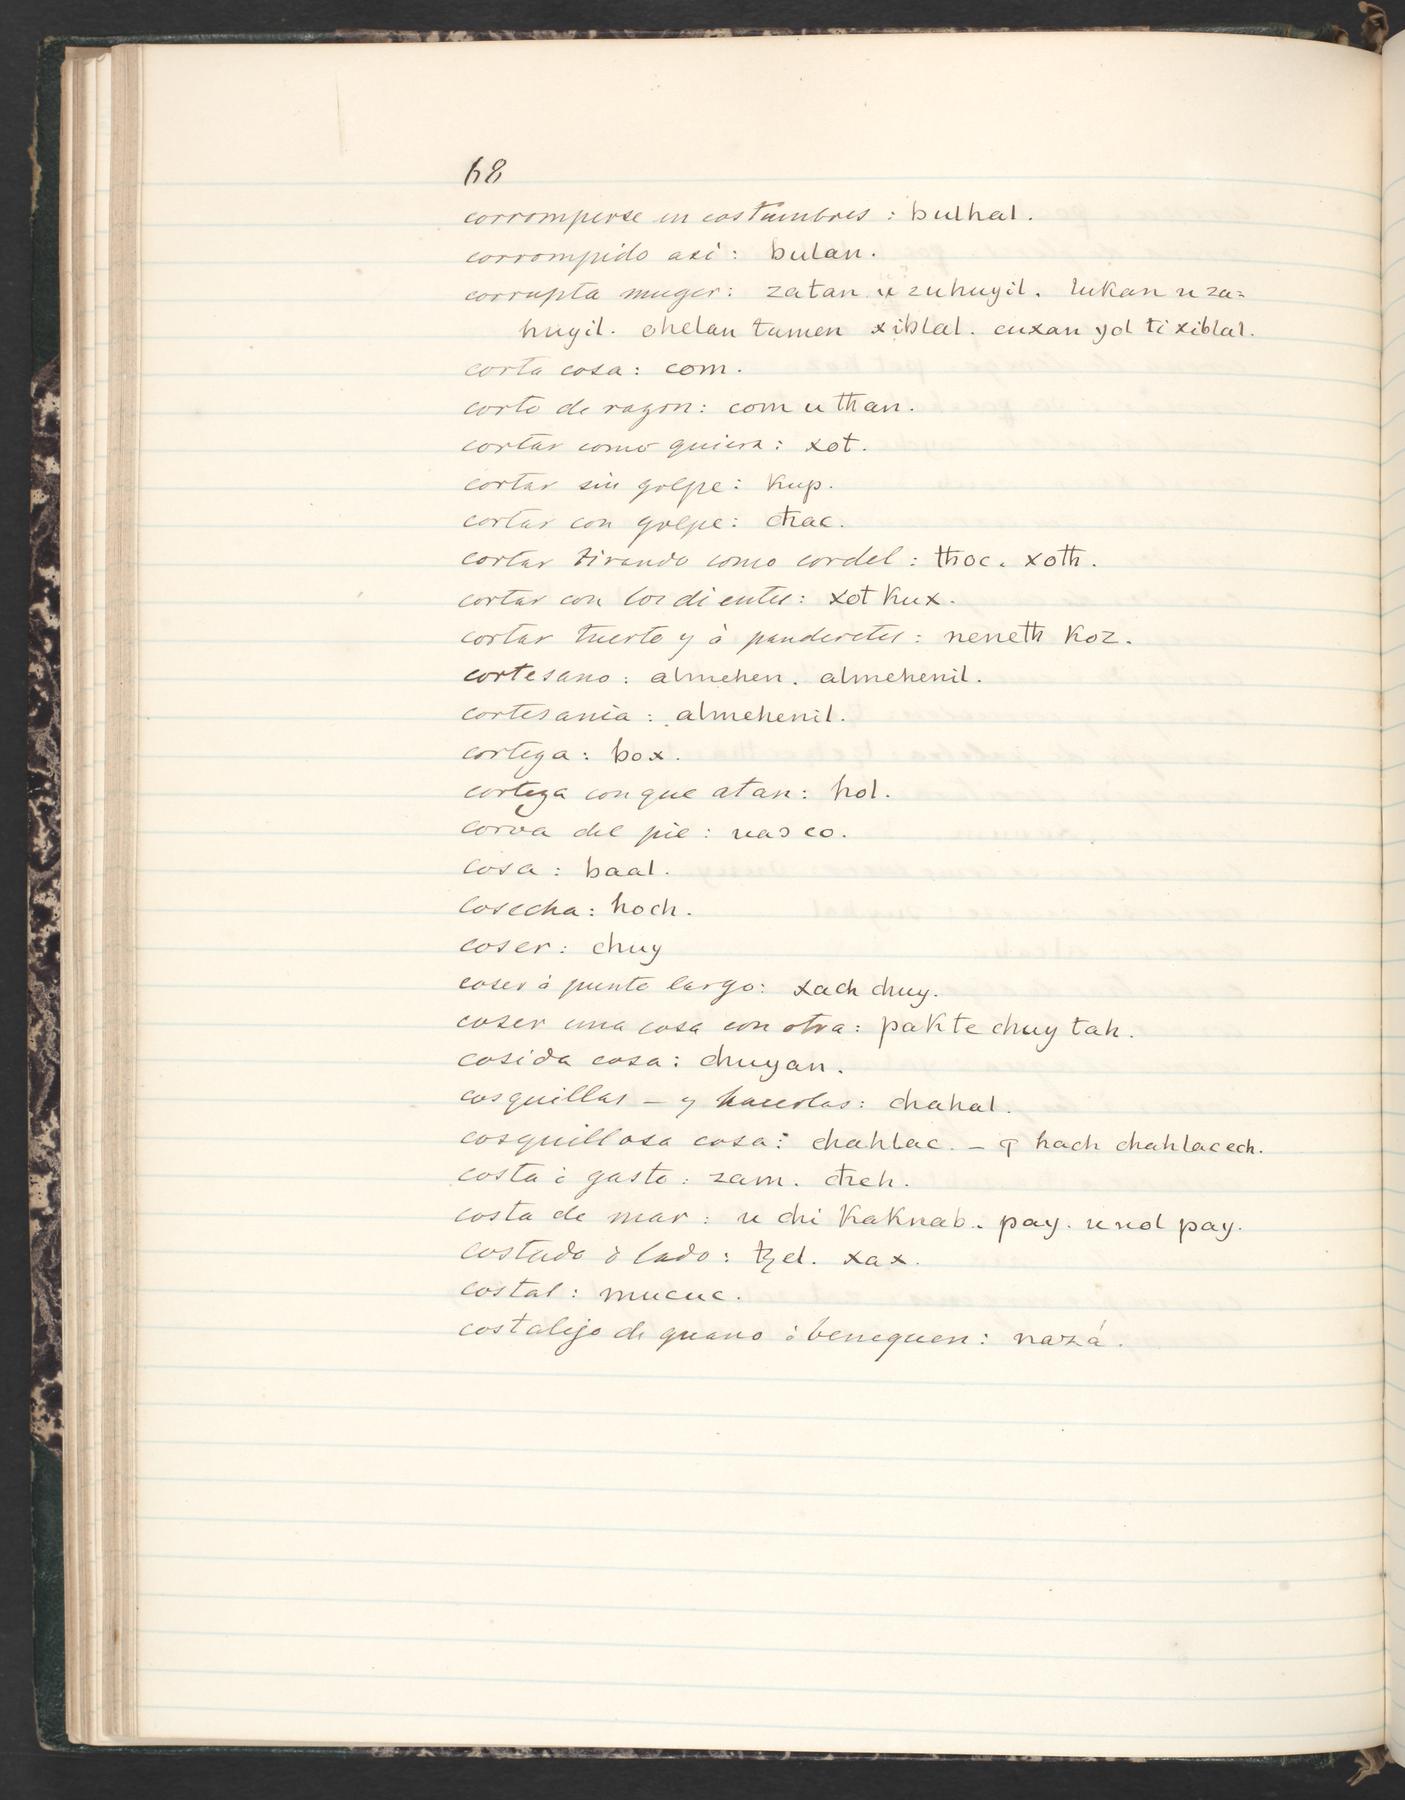 68
corromperse en costumbres : bulhal.
corrompido asi : bulan.
corrupta muger : zatan u zuhuyil. lukan u zu=
huyil. ohelan tumen xiblal. cuxan yol ti xiblal.
corta cosa : com.
corto de razon : com u than.
cortar como quiera : xot.
cortar sin golpe : kup.
cortar con golpe : cħac.
cortar tirando como cordel : thoc. xoth.
cortar con los dientes : xot kux.
cortar tuerto y à panderetes : neneth koz.
cortesano : almehen. almehenil.
cortesania : almehenil.
corteza : box.
corteza con que atan : hol.
corva del pie : uaɔ co.
cosa : baal.
cosecha : hoch.
coser : chuy
coser à punto largo : xach chuy.
coser una cosa con otra : pakte chuy tah.
cosida cosa : chuyan.
cosquillas – y hacerlas : chahal.
cosquillosa cosa : chahlac. – ꟼ hach chahlacech.
costa ò gasto : zam. cħeh.
costa de mar : u chi kaknab. pay. u uol pay.
costado ò lado : tzel. xax.
costal : mucuc.
costalejo de guano ò henequen : nazá.